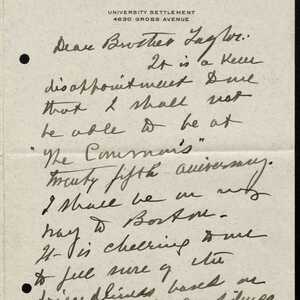 UNIVERSITY SETTLEMENT
4630 GROSS AVENUE
Dear Brother Taylor.
It is a keen
disappointment to me
that I shall not
be able to be at
"The Common's"
twenty fifth aniversary.
I shall be on my
way to Boston.
It is cheering to me
to feel sure of the
friendliness based on